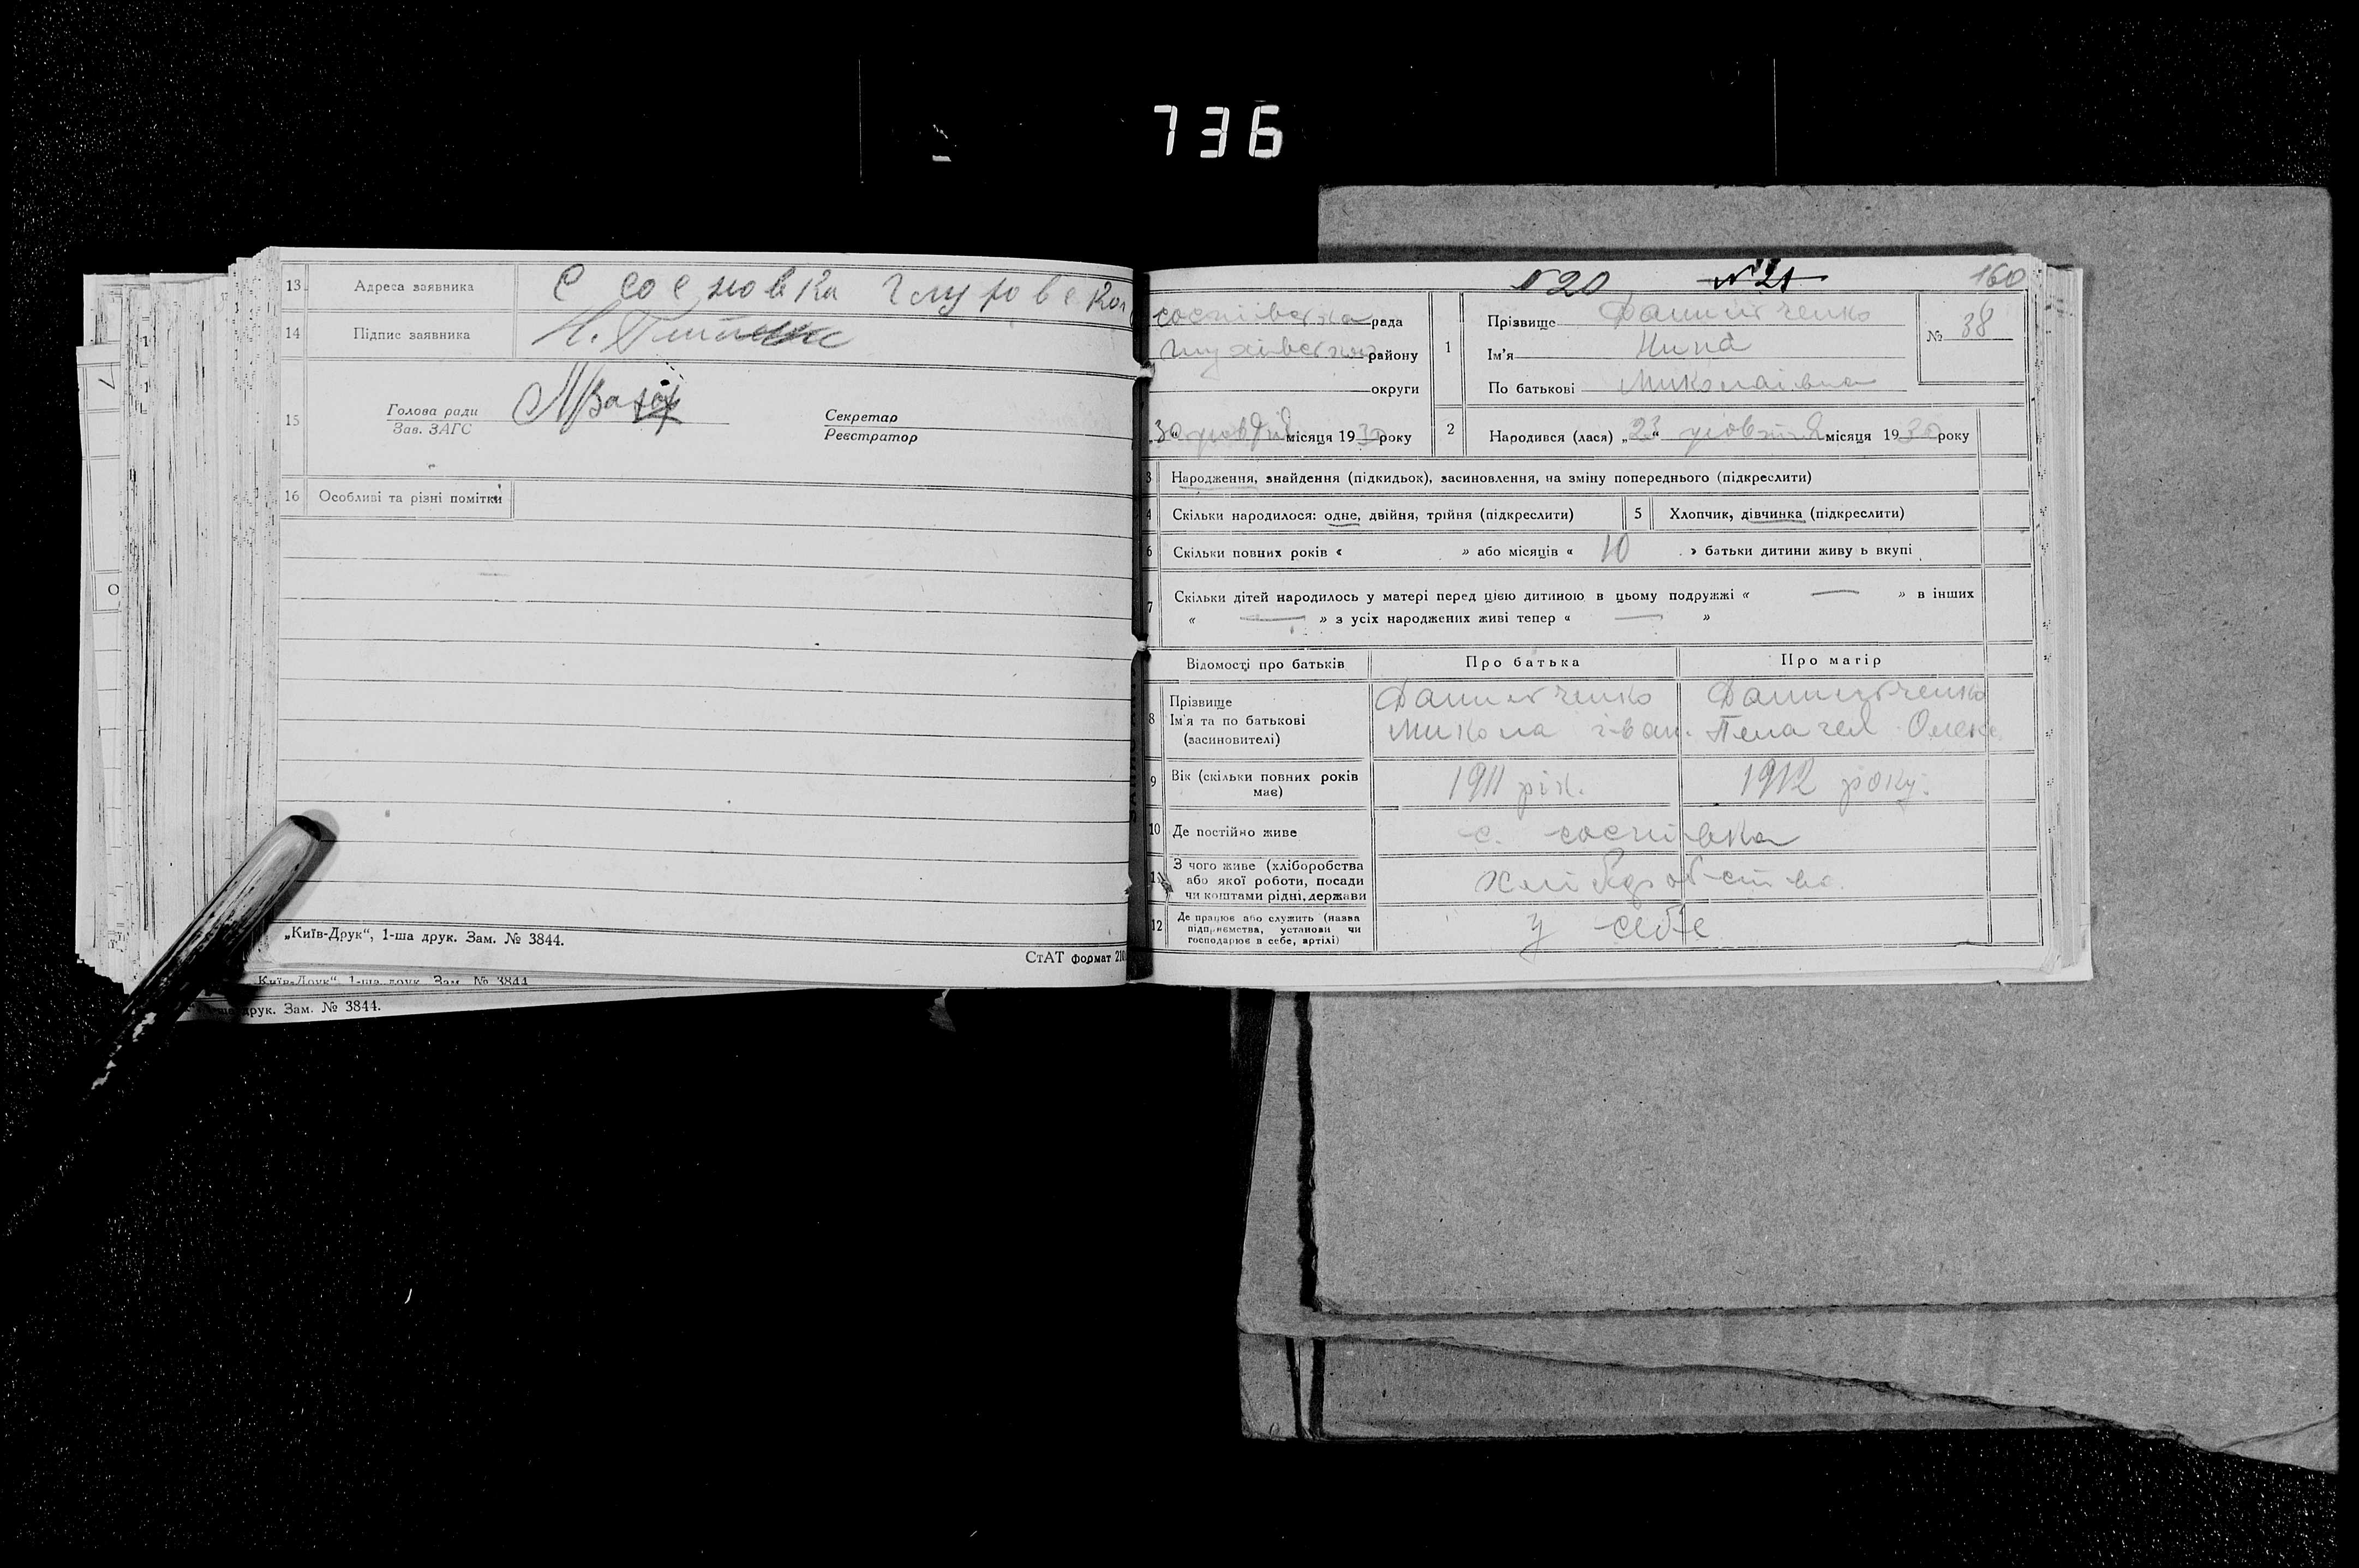 736
13 Адреса заявника С Сосновка Глуховско
14 Підпис заявника
15 Голова ради
Зав. ЗАГС
Секретар
Реєстратор
16 Особливі та різні помітки
„Київ-Друк“, 1-ша друк. Зам. № 3844.
СтАТ формат 210
„Київ-Друк“, 1-ша друк. Зам. № 3844
друк. Зам. № 3844.
№20 №21 160
соснівська рада
Глухівського району
округи
„30“ жовтня місяця 1930 року
1 Прізвище Данильченко
Ім'я Нина
По батькові Миколаівна
№ 38
2 Народився (лася) „23“ жовтня місяця 1930 року
3 Народження, знайдення (підкидьок), засиновлення, на зміну попереднього (підкреслити)
4 Скільки народилося: одне, двійня, трійня (підкреслити) 5 Хлопчик, дівчинка (підкреслити)
6 Скільки повних років « » або місяців « 10 » батьки дитини живу ь вкупі
7 Скільки дітей народилось у матері перед цією дитиною в цьому подружжі « — » в інших
« — » з усіх народжених живі тепер « — »
Відомості про батьків Про батька Про матір
8 Прізвище Данильченко Данильченко
Ім'я та по батькові Микола іван. Пелагея Олекс
(засиновителі)
9 Вік (скільки повних років має) 1911 рік. 1912 року.
10 Де постійно живе с. соснівка
11 З чого живе (хліборобства
або якої роботи, посади
чи коштами рідні, держави
хліборобство.
12 Де працює або служить (назва
підприємства, установи чи
господарює в себе, артілі)
у себе